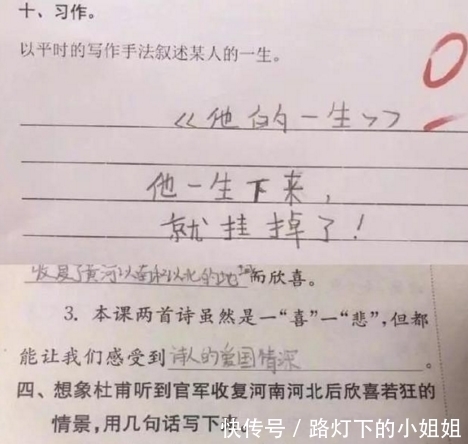 十、习作。
以平时的写作手法叙述某人的一生。
0
《他的一生》
他一生下来,
就挂掉了!
收复了黄河以南和以北的地而欣喜。
3. 本课两首诗虽然是一“喜”一“悲”,但都
能让我们感受到诗人的爱国情深。
四、想象杜甫听到官军收复河南河北后欣喜若狂的
情景,用几句话写下来。
快传号 / 路灯下的小姐姐